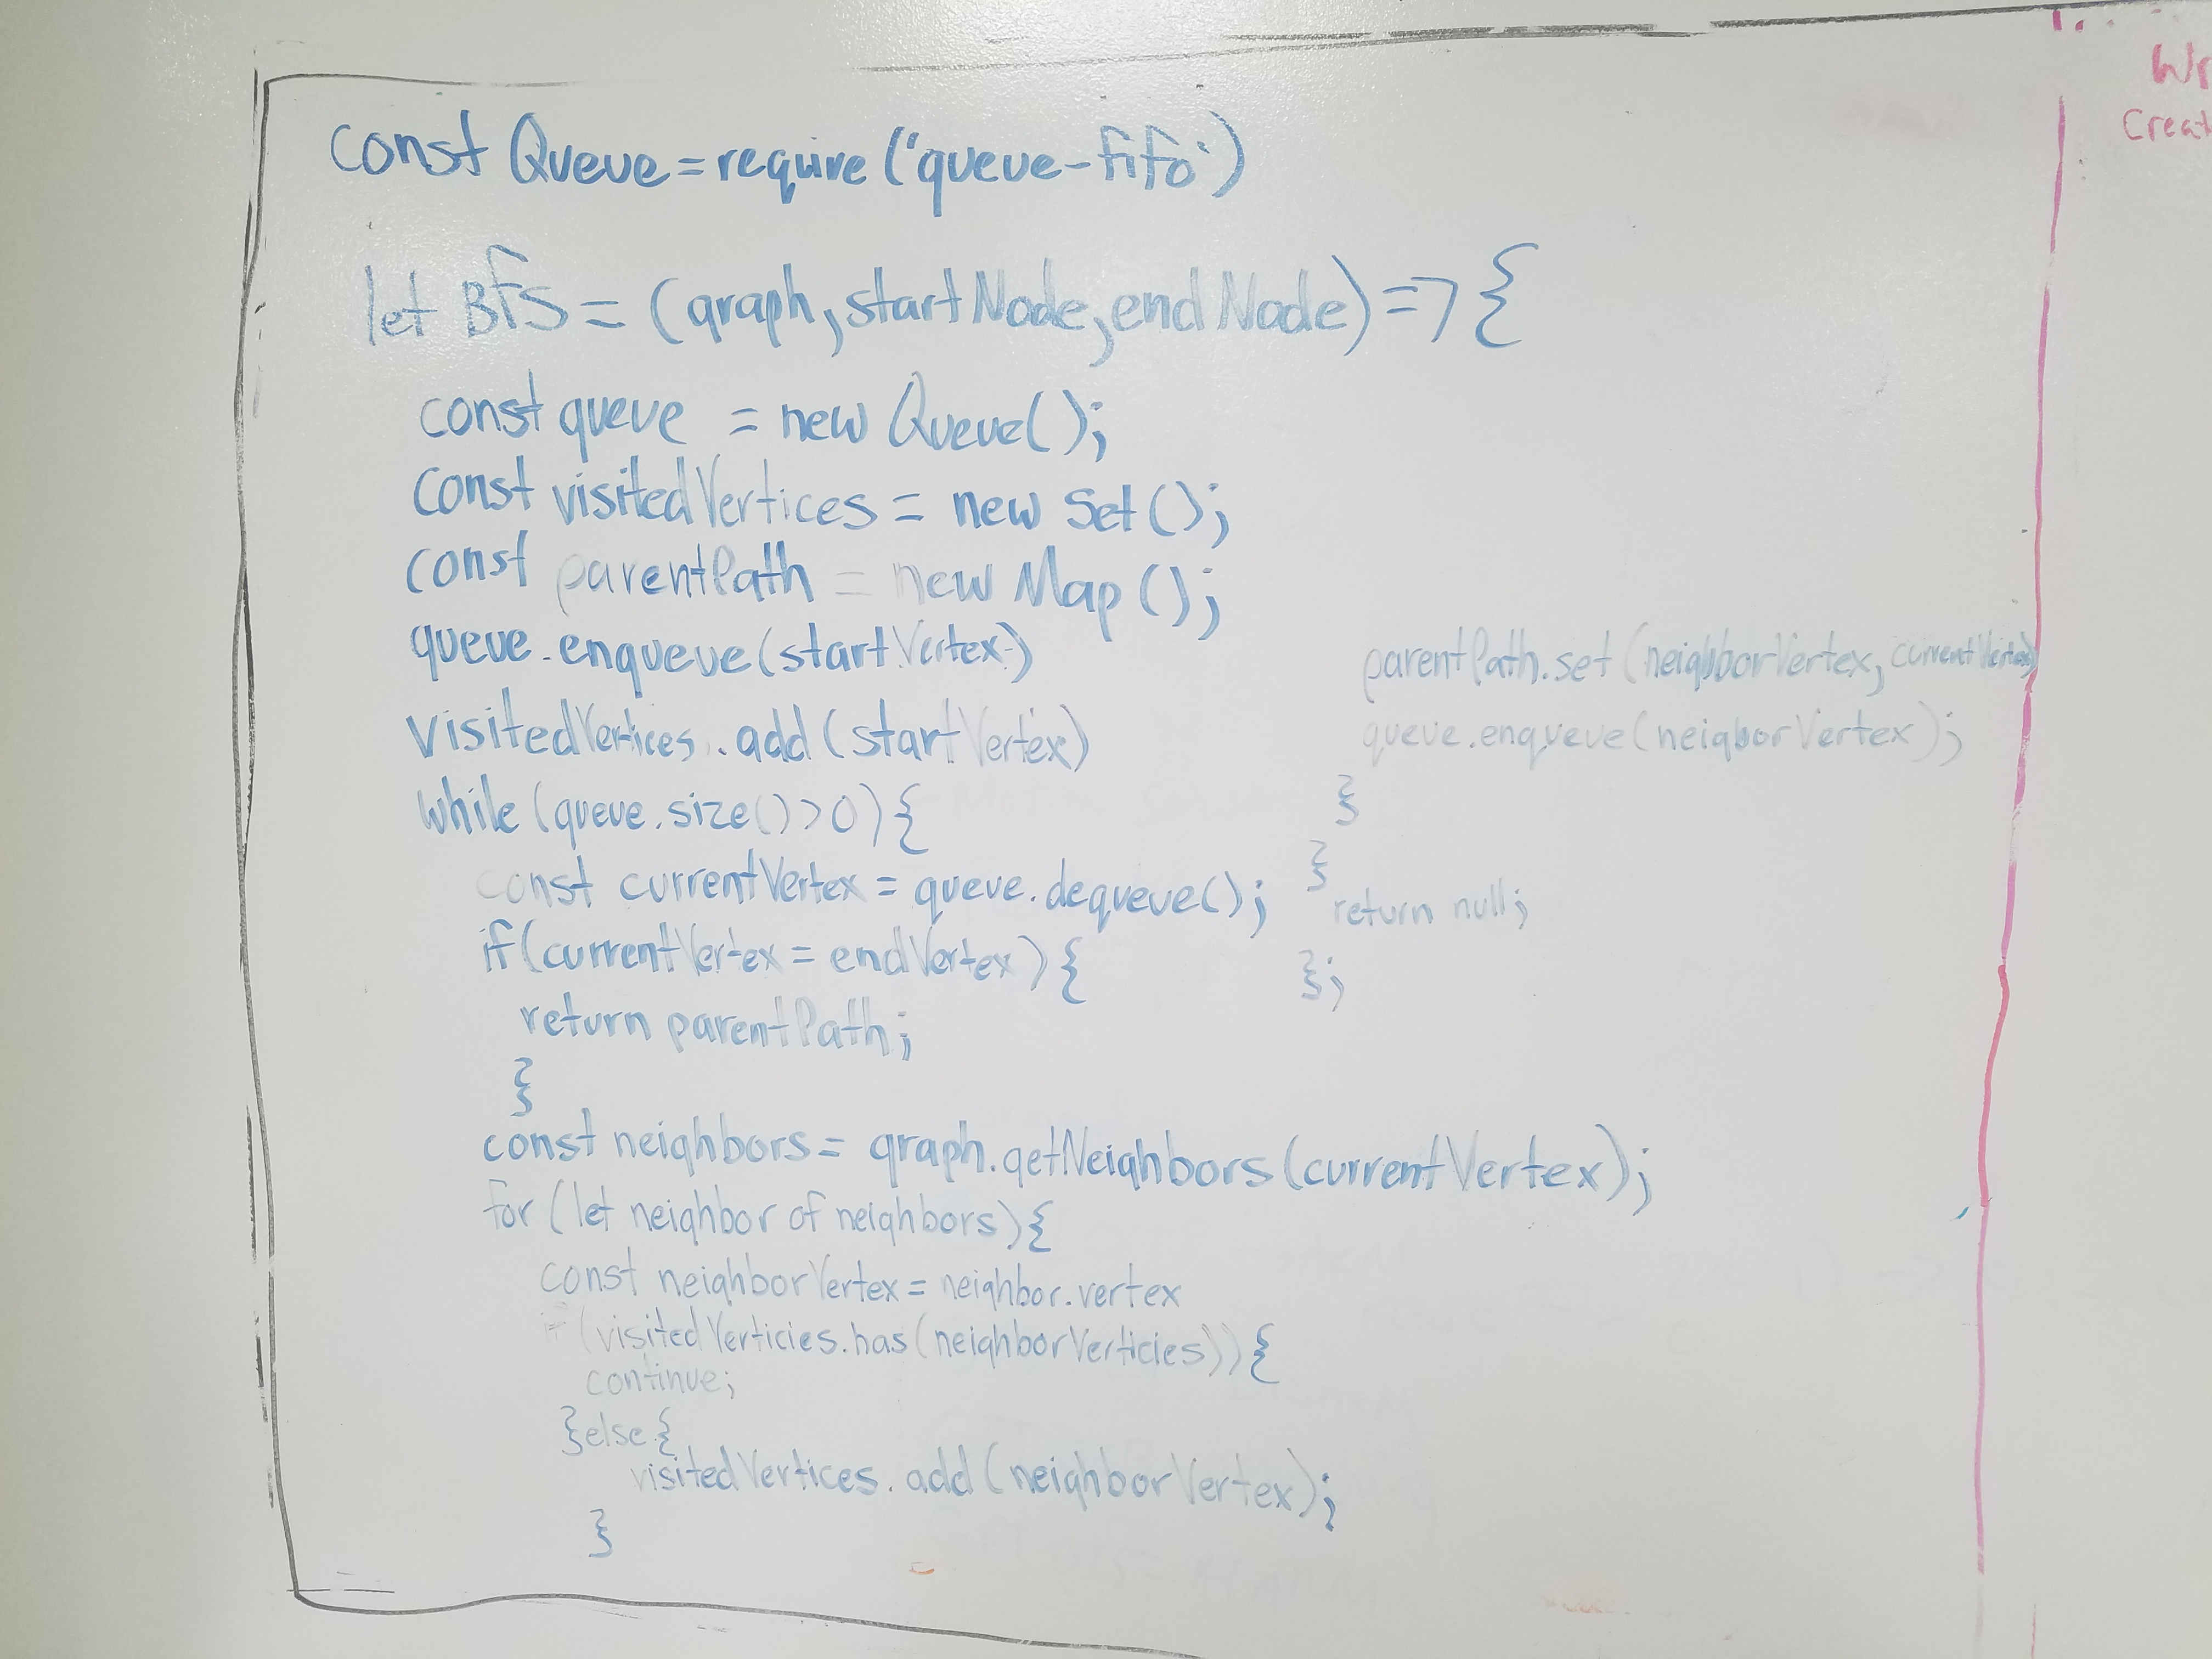 const Queue = require('queue-fifo')
let BFS = (graph, startNode, endNode) => {
const queue = new Queue();
const visitedVertices = new Set();
const parentPath = new Map();
queue.enqueue(startVertex)
visitedVertices.add(startVertex)
while (queue.size() > 0) {
const currentVertex = queue.dequeue();
if (currentVertex = endVertex) {
return parentPath;
}
const neighbors = graph.getNeighbors(currentVertex);
for (let neighbor of neighbors) {
const neighborVertex = neighbor.vertex
if (visitedVerticies.has(neighborVerticies)) {
continue;
} else {
visitedVertices.add(neighborVertex);
}
parentPath.set(neighborVertex, currentVertex)
queue.enqueue(neigborVertex);
}
}
return null;
};